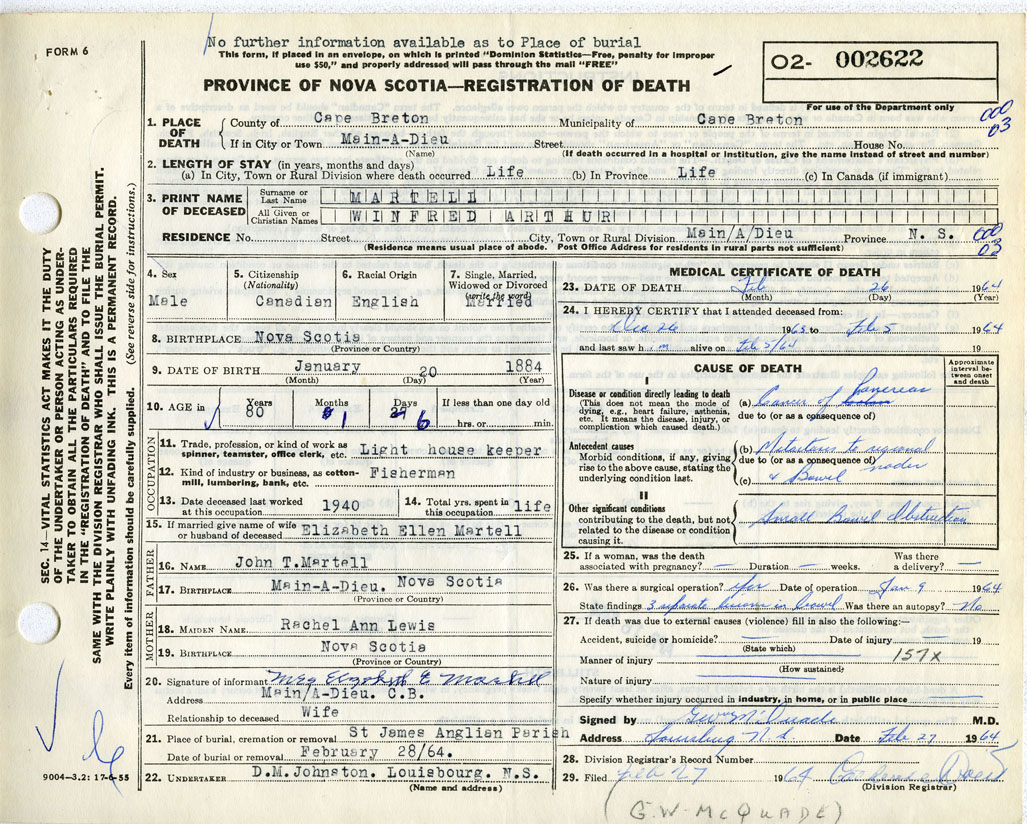 FORM 6
No further information available as to Place of burial
This form, if placed in an envelope, on which is printed "Dominion Statistics—Free, penalty for improper
use $50," and properly addressed will pass through the mail "FREE"
O2- 002622
PROVINCE OF NOVA SCOTIA—REGISTRATION OF DEATH
For use of the Department only
000
03
1. PLACE OF DEATH County of Cape Breton Municipality of Cape Breton
If in City or Town Main-A-Dieu Street House No.
(Name) (If death occurred in a hospital or institution, give the name instead of street and number)
2. LENGTH OF STAY (in years, months and days)
(a) In City, Town or Rural Division where death occurred Life (b) In Province Life (c) In Canada (if immigrant)
3. PRINT NAME OF DECEASED Surname or Last Name MARTELL
All Given or Christian Names WINFRED ARTHUR
RESIDENCE No. Street City, Town or Rural Division Main/A/Dieu Province N. S. 000
03
(Residence means usual place of abode. Post Office Address for residents in rural parts not sufficient)
4. Sex Male
5. Citizenship (Nationality) Canadian
6. Racial Origin English
7. Single, Married, Widowed or Divorced (write the word) Married
8. BIRTHPLACE Nova Scotia
(Province or Country)
9. DATE OF BIRTH January 20 1884
(Month) (Day) (Year)
10. AGE in Years 80 Months 1 Days 6 If less than one day old
hrs. or min.
OCCUPATION
11. Trade, profession, or kind of work as
spinner, teamster, office clerk, etc. Light house keeper
12. Kind of industry or business, as cotton-
mill, lumbering, bank, etc. Fisherman
13. Date deceased last worked
at this occupation 1940
14. Total yrs. spent in
this occupation life
15. If married give name of wife
or husband of deceased Elizabeth Ellen Martell
FATHER
16. NAME John T.Martell
17. BIRTHPLACE Main-A-Dieu. Nova Scotia
(Province or Country)
MOTHER
18. MAIDEN NAME Rachel Ann Lewis
19. BIRTHPLACE Nova Scotia
(Province or Country)
20. Signature of informant Mrs Elizabeth E Martell
Address Main/A-Dieu. C.B.
Relationship to deceased Wife
21. Place of burial, cremation or removal St James Anglian Parish
Date of burial or removal February 28/64.
22. UNDERTAKER D.M.Johnston. Louisbourg. N.S.
(Name and address)
MEDICAL CERTIFICATE OF DEATH
23. DATE OF DEATH Feb 26 1964
(Month) (Day) (Year)
24. I HEREBY CERTIFY that I attended deceased from:
Dec 26 1963 to Feb 5 1964
and last saw h im alive on Feb 5/64 19
CAUSE OF DEATH
Approximate interval between onset and death
I
Disease or condition directly leading to death
(This does not mean the mode of
dying, e.g., heart failure, asthenia,
etc. It means the disease, injury, or
complication which caused death.)
(a) Cancer of Pancreas
due to (or as a consequence of)
Antecedent causes
Morbid conditions, if any, giving
rise to the above cause, stating the
underlying condition last.
(b) Metastases to regional
due to (or as a consequence of) nodes
(c) & Bowel
II
Other significant conditions
contributing to the death, but not
related to the disease or condition
causing it.
Small Bowel Obstruction
25. If a woman, was the death
associated with pregnancy? — Duration — weeks. Was there
a delivery? —
26. Was there a surgical operation? yes Date of operation Jan 9 1964
State findings 3 separate in bowel Was there an autopsy? No
27. If death was due to external causes (violence) fill in also the following:—
Accident, suicide or homicide? Date of injury 19
(State which)
Manner of injury 157x
(How sustained)
Nature of injury
Specify whether injury occurred in industry, in home, or in public place
Signed by G W McQuade M.D.
Address Louisburg N S Date Feb 27 1964
28. Division Registrar's Record Number
29. Filed Feb 27 1964
(Division Registrar)
(G.W-McQUADE)
SEC. 14—VITAL STATISTICS ACT MAKES IT THE DUTY
OF THE UNDERTAKER OR PERSON ACTING AS UNDER-
TAKER TO OBTAIN ALL THE PARTICULARS REQUIRED
IN THE "REGISTRATION OF DEATH" AND TO FILE THE
SAME WITH THE DIVISION REGISTRAR WHO SHALL ISSUE THE BURIAL PERMIT.
WRITE PLAINLY WITH UNFADING INK. THIS IS A PERMANENT RECORD.
Every item of information should be carefully supplied. (See reverse side for instructions.)
9004-3.2: 17-6-55